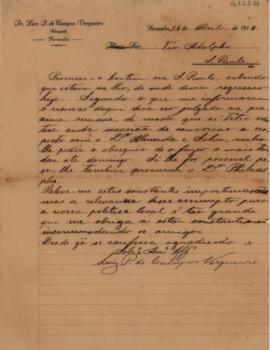 Dr. Luiz P. de Campos Vergueiro
Advogado
Sorocaba
Sorocaba, 26 de Abril de 1914
Illmo. Snr. Tio Adolpho
S. Paulo
Procurei-o hontem em S. Paulo, sabendo
que estava no Rio, de onde devia regressar
hoje. Segundo o que me informaram
o recurso daqui deve ser julgado na pro-
xima semana, de modo que si Tio
tem ainda occasião de conversar a res-
peito com o Dr. Almeida e Silva, venho
lhe pedir o obsequio de o fazer o mais tar-
dar até domingo. Si lhe for possivel pe-
ço-lhe tambem procurar o Dr. Philadel-
pho.
Releve-me estas constantes importunações
mas a relevancia desse assumpto para
a nossa politica local é tão grande
que me obriga a estar constantemente
incommodando os amigos.
Desde já se confessa agradecido o
Luiz P. de Campos Vergueiro